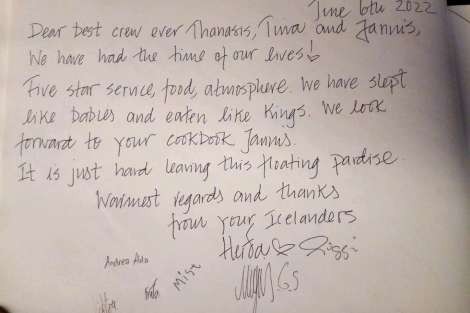 June 6th 2022
Dear best crew ever Thanasis, Tina and Jannis,
We have had the time of our lives!
Five star service, food, atmosphere. We have slept
like babies and eaten like Kings. We look
forward to your cookbook Jannis.
It is just hard leaving this floating pardise.
Warmest regards and thanks
from your Icelanders
Siggi
Andrea